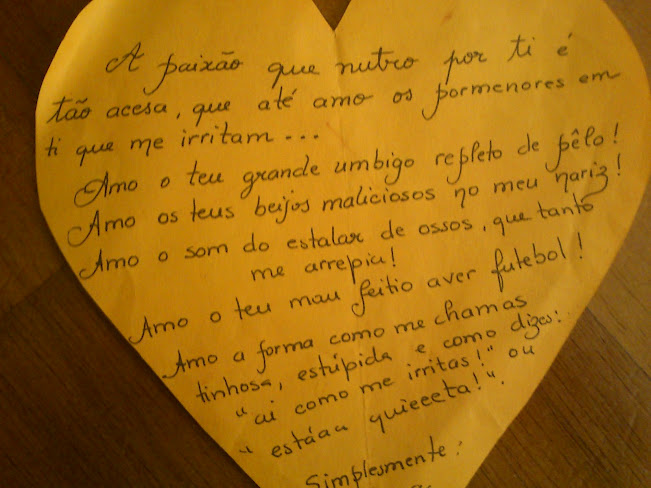 A paixão que nutro por ti é
tão acesa, que até amo os pormenores em
ti que me irritam...
Amo o teu grande umbigo repleto de pêlo!
Amo os teus beijos maliciosos no meu nariz!
Amo o som do estalar de ossos, que tanto
me arrepia!
Amo o teu mau feitio aver futebol!
Amo a forma como me chamas
tinhosa, estúpida e como dizes:
"ai como me irritas!" ou
"estáaa quieeeta!".
Simplesmente: